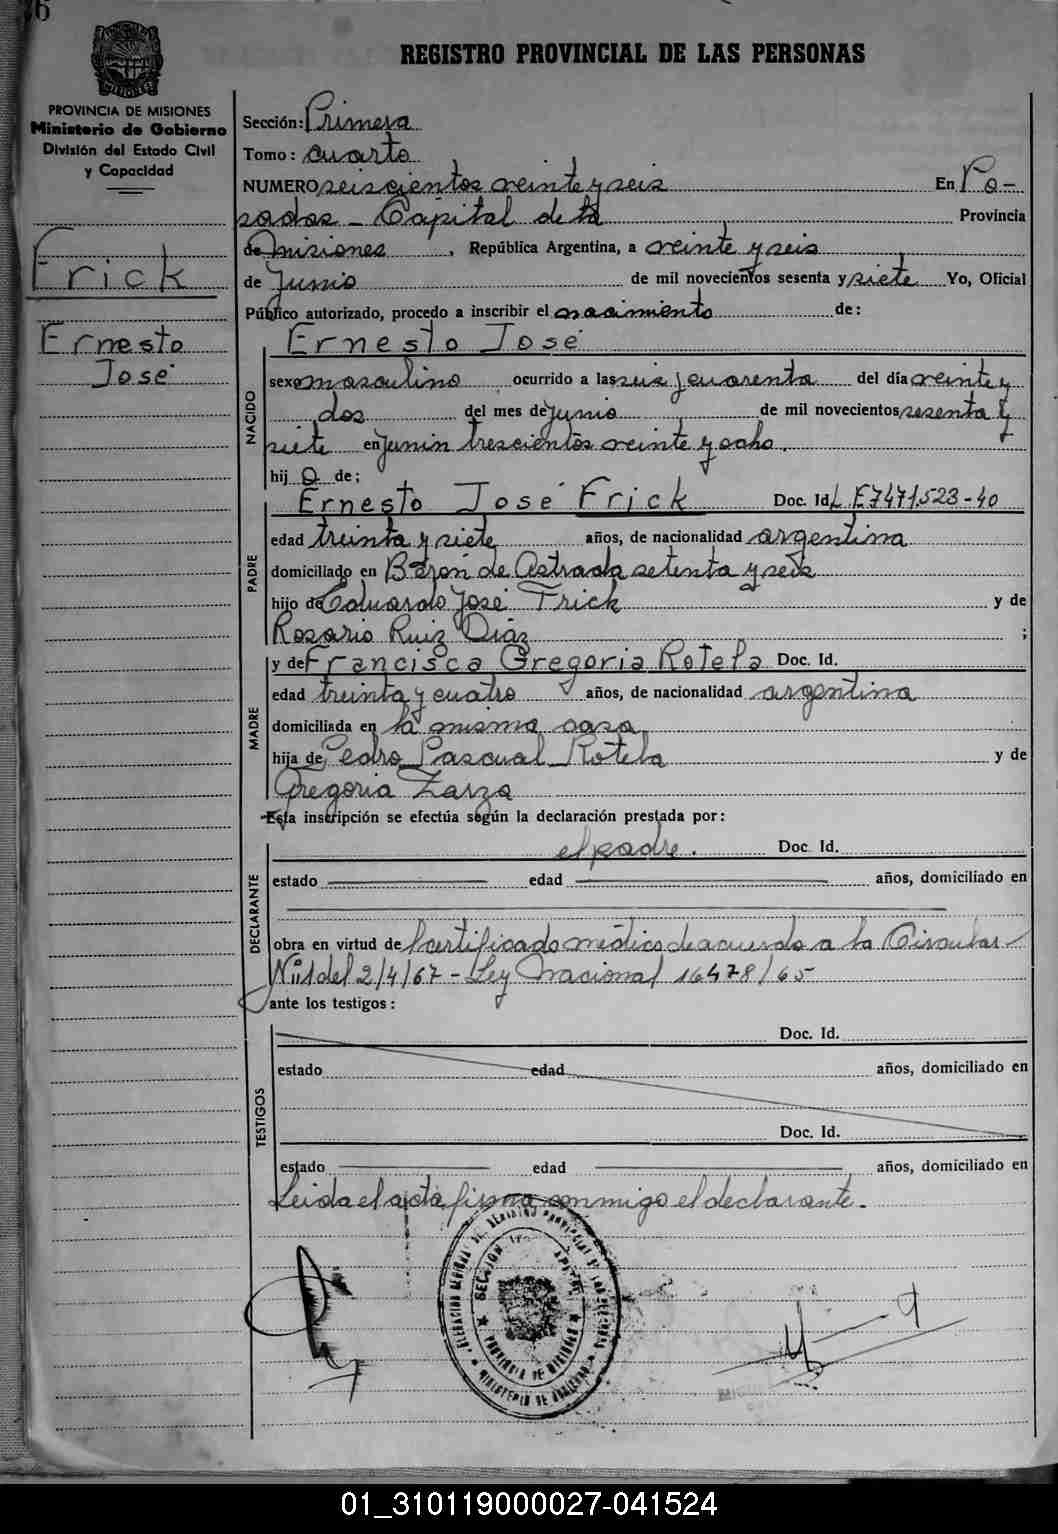 REGISTRO PROVINCIAL DE LAS PERSONAS
PROVINCIA DE MISIONES
Ministerio de Gobierno
División del Estado Civil
y Capacidad
Frick
Ernesto
José
Sección: Primera
Tomo: cuarto
NUMERO seiscientos veinte y seis En Po-
sadas - Capital de la Provincia
de Misiones, República Argentina, a veinte y seis
de Junio de mil novecientos sesenta y siete Yo, Oficial
Público autorizado, procedo a inscribir el nacimiento de:
NACIDO
Ernesto José
sexo masculino ocurrido a las seis y cuarenta del día veinte y
dos del mes de Junio de mil novecientos sesenta y
siete en Junin trescientos veinte y ocho.
hij o de:
PADRE
Ernesto José Frick Doc. Id. L.E 7471.523-40
edad treinta y siete años, de nacionalidad argentina
domiciliado en Berón de Astrada setenta y seis
hijo de Eduardo José Frick y de
Rosario Ruiz Diaz ;
MADRE
y de Francisca Gregoria Rotela Doc. Id.
edad treinta y cuatro años, de nacionalidad argentina
domiciliada en la misma casa
hija de Pedro Pascual Rotela y de
Gregoria Zarza
Esta inscripción se efectúa según la declaración prestada por:
DECLARANTE
el padre. Doc. Id.
estado edad años, domiciliado en
obra en virtud de certificado médico de acuerdo a la Circular
Nº 1 del 2/4/67 - Ley Nacional 16478/65
ante los testigos:
TESTIGOS
Doc. Id.
estado edad años, domiciliado en
Doc. Id.
estado edad años, domiciliado en
Leida el acta, firma conmigo el declarante.
PROVINCIA DE MISIONES
MINISTERIO DE GOBIERNO
01_310119000027-041524